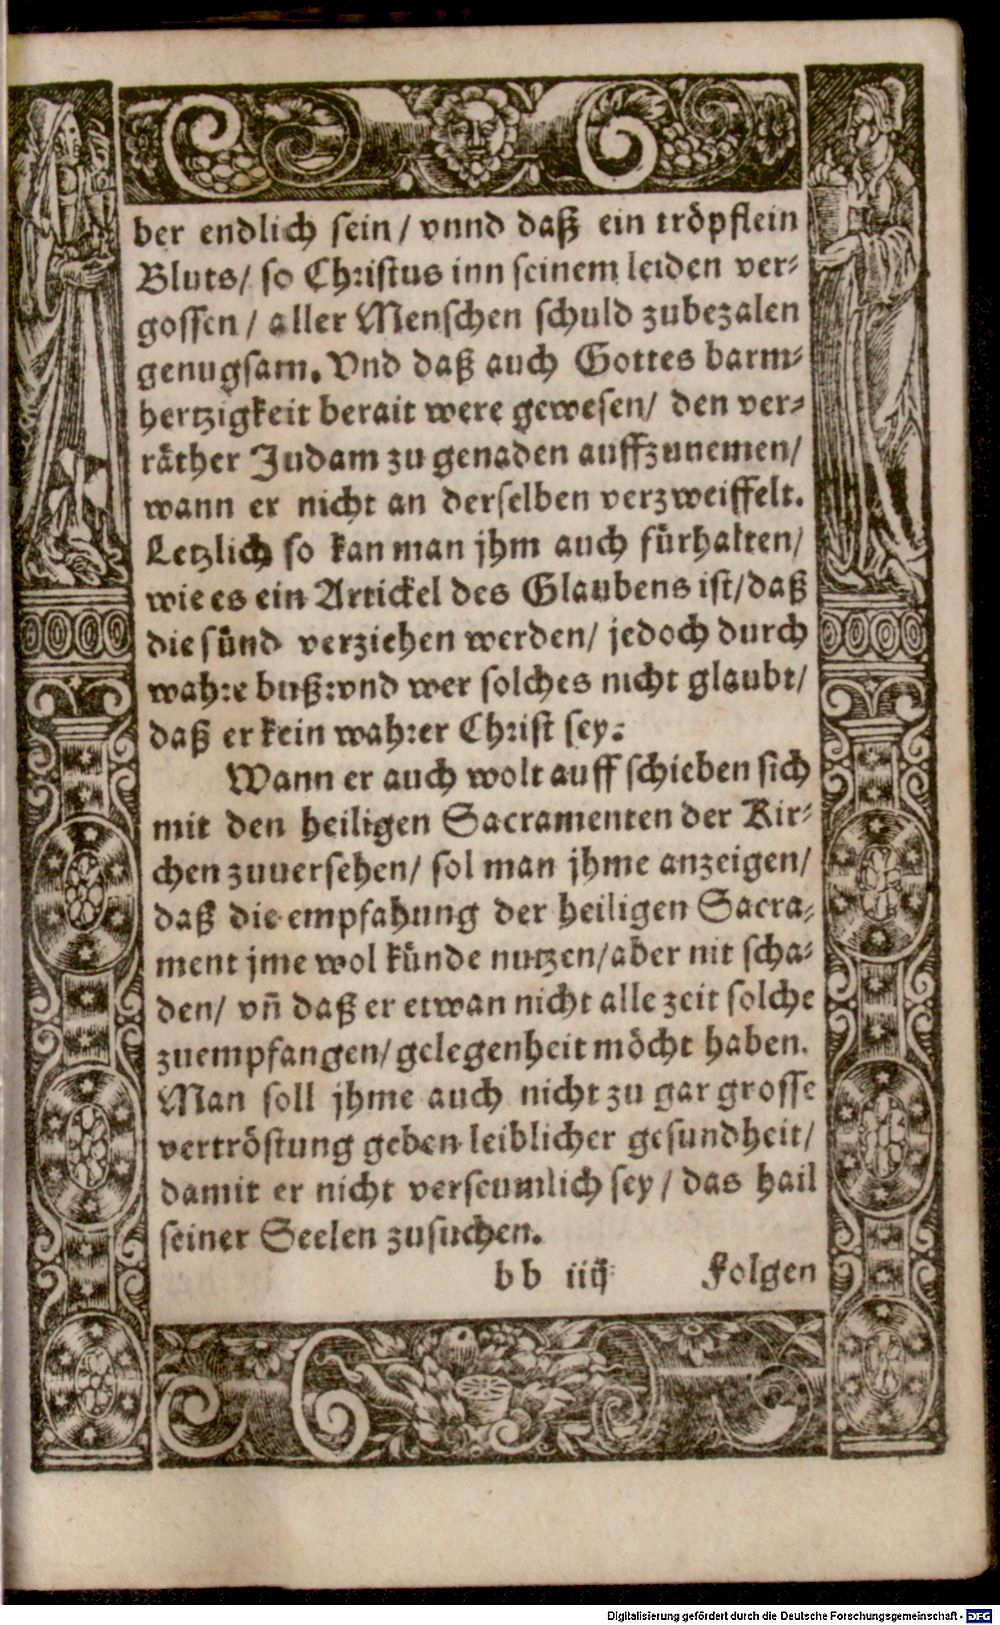 ber endlich sein / vnnd daß ein tröpflein
Bluts / so Christus inn seinem leiden ver-
gossen / aller Menschen schuld zubezalen
genugsam. Vnd daß auch Gottes barm-
hertzigkeit berait were gewesen / den ver-
räther Judam zu genaden auffzunemen /
wann er nicht an derselben verzweiffelt.
Letzlich so kan man jhm auch fürhalten /
wie es ein Artickel des Glaubens ist / daß
die sünd verziehen werden / jedoch durch
wahre buß: vnd wer solches nicht glaubt /
daß er kein wahrer Christ sey.
Wann er auch wolt auff schieben sich
mit den heiligen Sacramenten der Kir-
chen zuuersehen / sol man jhme anzeigen /
daß die empfahung der heiligen Sacra-
ment jme wol künde nutzen / aber nit scha-
den / vn̄ daß er etwan nicht alle zeit solche
zuempfangen / gelegenheit möcht haben.
Man soll jhme auch nicht zu gar grosse
vertröstung geben leiblicher gesundheit /
damit er nicht verseumlich sey / das hail
seiner Seelen zusuchen.
bb iiij Folgen
Digitalisierung gefördert durch die Deutsche Forschungsgemeinschaft - DFG